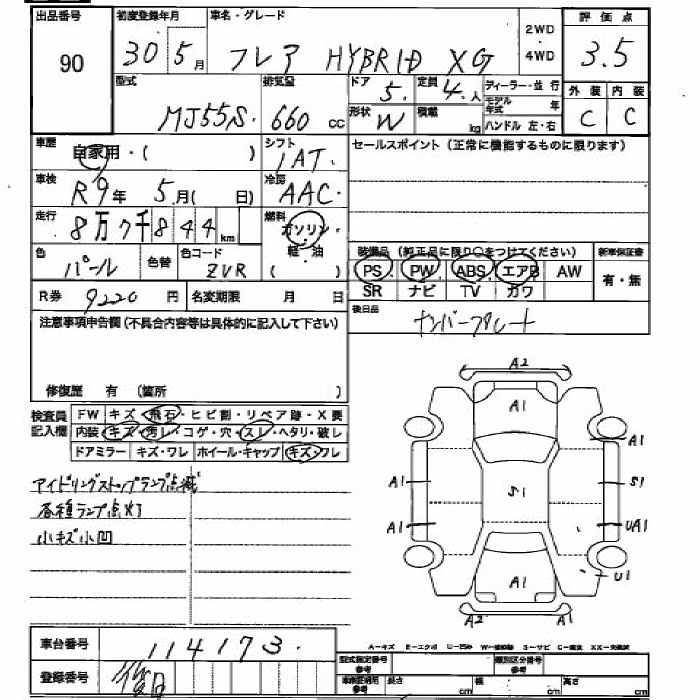 出品番号 初度登録年月 車名・グレード 2WD ・ 4WD 評価点
90 30 5月 フレア HYBRID XG 3.5
型式 排気量 ドア 定員 ディーラー・並行 外装 内装
MJ55S. 660 cc 5. 4.人 モデル年式 年 C C
形状 W 積載 kg ハンドル 左・右
車歴 自家用・( ) シフト セールスポイント(正常に機能するものに限ります)
1AT.
車検 R9年 5月( 日) 冷房 AAC.
走行 8万7千844km 燃料 ガソリン・軽・油
色 パール 色替 色コード ZVR 装備品(純正品に限り○をつけてください) 新車保証書
PS PW ABS エアB AW 有・無
SR ナビ TV カワ
R券 9220 円 名変期限 月 日 後日品
ナンバープレート
注意事項申告欄(不具合内容等は具体的に記入して下さい)
修復歴 有 (箇所 )
検査員記入欄 FW キズ・飛石・ヒビ割・リペア跡・X要
内装 キズ・汚レ・コゲ・穴・スレ・ヘタリ・破レ
ドアミラー キズ・ワレ ホイール・キャップ キズ・ワレ
アイドリングストップランプ点滅
各種ランプ点灯
小キズ小凹
A2
A1
A1
A1 S1 S1
A1 UA1
A1 U1
A2 A1
A-キズ E-エクボ U-凹み S-サビ C-腐食 XX-交換済
車台番号 114173.
登録番号 後日
型式指定番号 参考 類別区分番号 参考
車庫証明用 参考 長さ cm 幅 cm 高さ cm